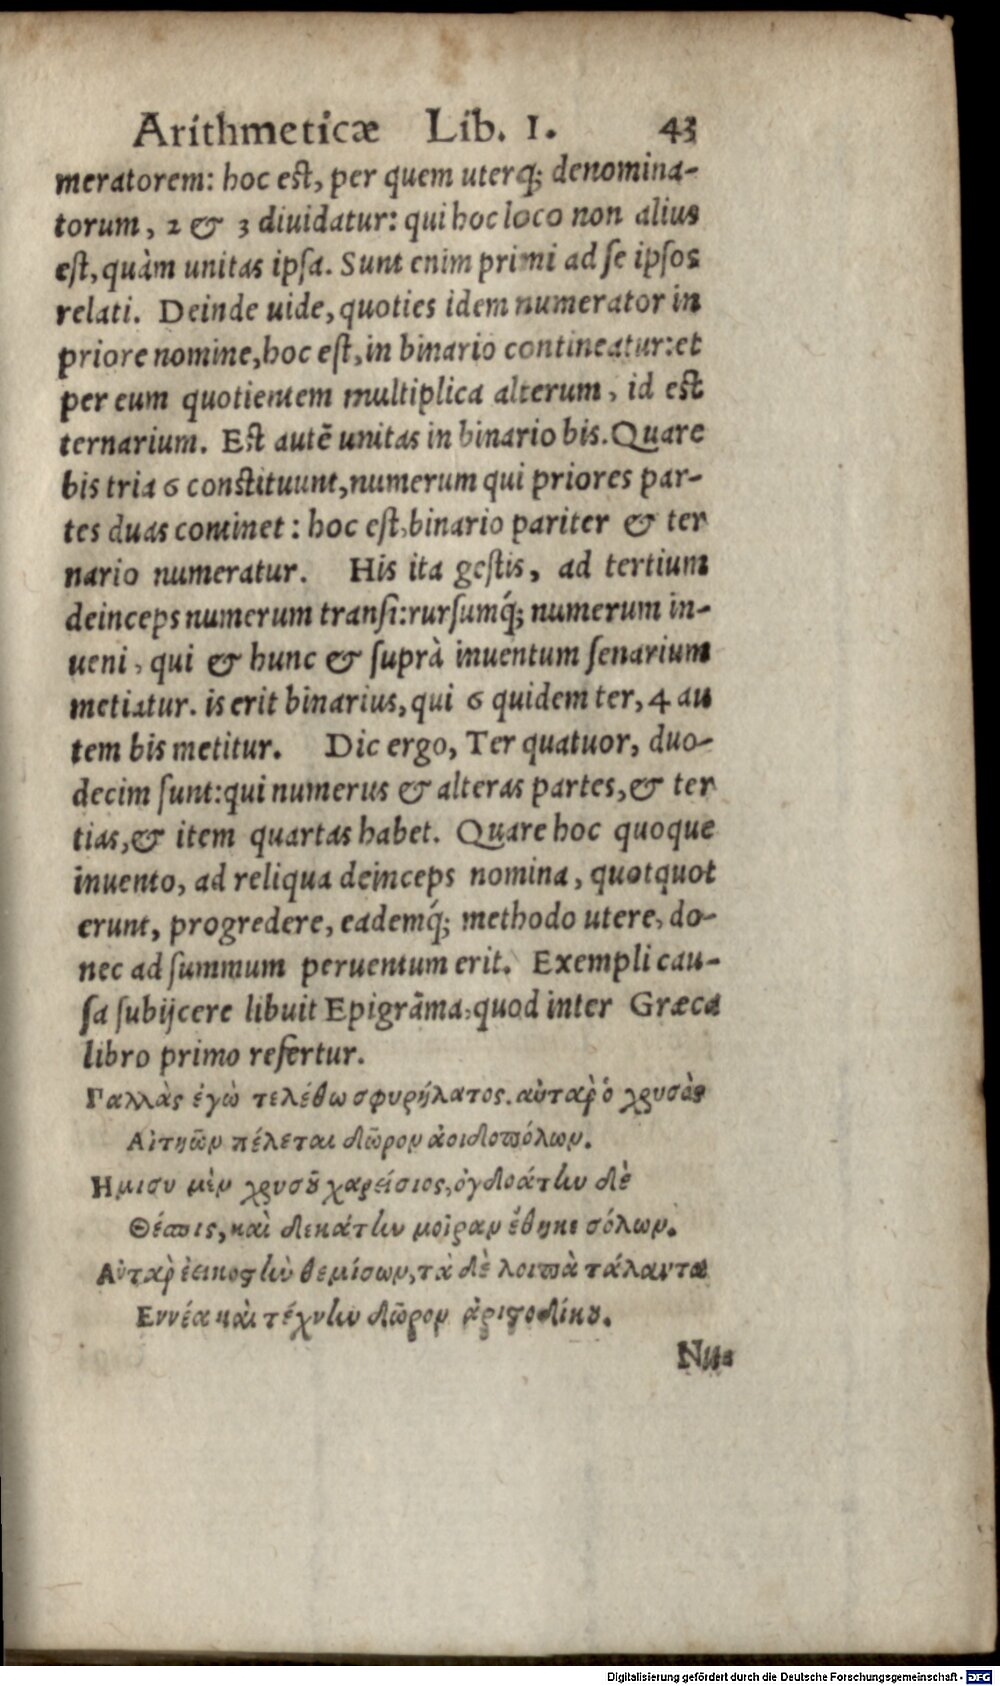 Arithmeticæ Lib. I. 43
meratorem: hoc est, per quem uterq; denomina-
torum, 2 & 3 diuidatur: qui hoc loco non alius
est, quàm unitas ipsa. Sunt enim primi ad se ipsos
relati. Deinde uide, quoties idem numerator in
priore nomine, hoc est, in binario contineatur: et
per eum quotientem multiplica alterum, id est
ternarium. Est autē unitas in binario bis. Quare
bis tria 6 constituunt, numerum qui priores par-
tes duas continet: hoc est, binario pariter & ter
nario numeratur. His ita gestis, ad tertium
deinceps numerum transi: rursumq́; numerum in-
ueni, qui & hunc & suprà inuentum senarium
metiatur. is erit binarius, qui 6 quidem ter, 4 au
tem bis metitur. Dic ergo, Ter quatuor, duo-
decim sunt: qui numerus & alteras partes, & ter
tias, & item quartas habet. Quare hoc quoque
inuento, ad reliqua deinceps nomina, quotquot
erunt, progredere, eademq́; methodo utere, do-
nec ad summum peruentum erit. Exempli cau-
sa subijcere libuit Epigrāma, quod inter Græca
libro primo refertur.
Γαλλὰς ἐγὼ τελέθω σφυρήλατος. αὐτὰρ ὁ χρυσὸς
Αἰζηῶν πέλεται δῶρον ἀοιδοπόλων.
Ημισυ μὲν χρυσοῦ χαρείσιος, ὀγδοάτην δὲ
Θέσπις, καὶ δεκάτην μοῖραν ἔθηκε σόλων.
Αὐτὰρ ἐεικοστὴν θεμίσων, τὰ δὲ λοιπὰ τάλαντα
Εννέα καὶ τέχνην δῶρον ἀριστοδίκου.
Nu=